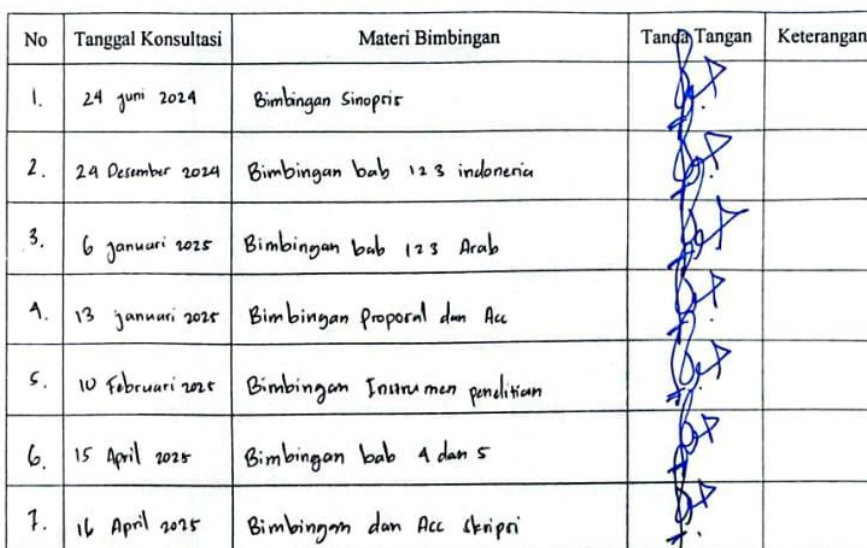 No Tanggal Konsultasi Materi Bimbingan Tanda Tangan Keterangan
1. 24 juni 2024 Bimbingan Sinopsis
2. 24 Desember 2024 Bimbingan bab 123 indonesia
3. 6 januari 2025 Bimbingan bab 123 Arab
4. 13 januari 2025 Bimbingan Proposal dan Acc
5. 10 Februari 2025 Bimbingan Instrumen penelitian
6. 15 April 2025 Bimbingan bab 4 dan 5
7. 16 April 2025 Bimbingan dan Acc skripsi